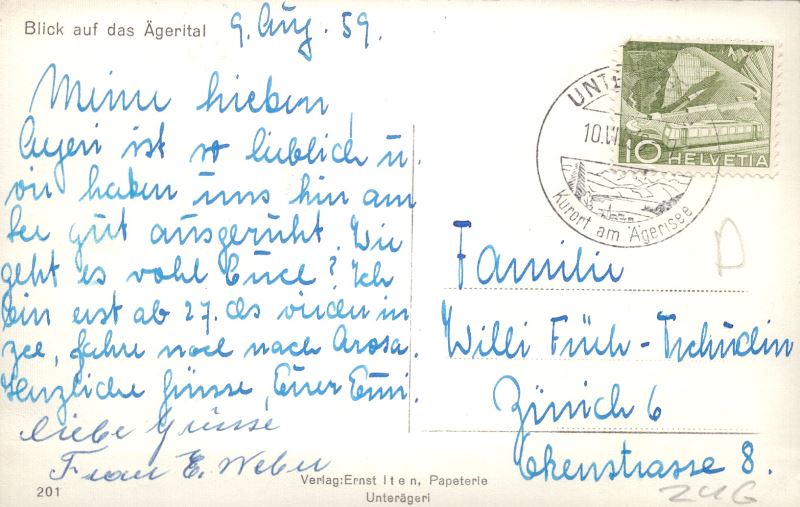 Blick auf das Ägerital
9. Aug. 59.
Meine Lieben,
Aegeri ist so lieblich u.
wir haben uns hier am
See gut ausgeruht. Wie
geht es wohl Euch? Ich
bin erst ab 27. ds wieder in
zch, fahre noch nach Arosa.
Herzliche Grüsse, Eurer Emi.
Liebe Grüsse
Frau E. Weber
201
Verlag: Ernst Iten, Papeterie
Unterägeri
UNTE
10.VI
Kurort am Ägerisee
10 HELVETIA
D
Familie
Willi Früh-Tschudin
Zürich 6
Ekkehardstrasse 8.
ZUG